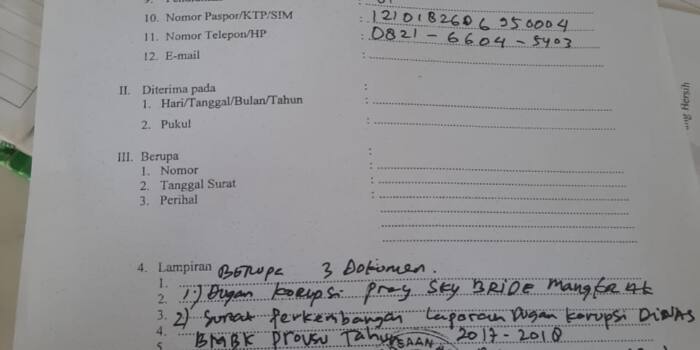 10. Nomor Paspor/KTP/SIM : 1210182606950004
11. Nomor Telepon/HP : 0821 - 6604 - 5403
12. E-mail :
II. Diterima pada :
1. Hari/Tanggal/Bulan/Tahun :
2. Pukul :
III. Berupa :
1. Nomor :
2. Tanggal Surat :
3. Perihal :
4. Lampiran Berupa 3 Dokumen.
1.
2. 1.) Dugan Korupsi Proy SKY BRIDE Mangkrak
3. 2) Surat Perkembangan Laporan Dugan Korupsi DINAS
4. BMBK Provsu Tahun 2017 - 2018
5.